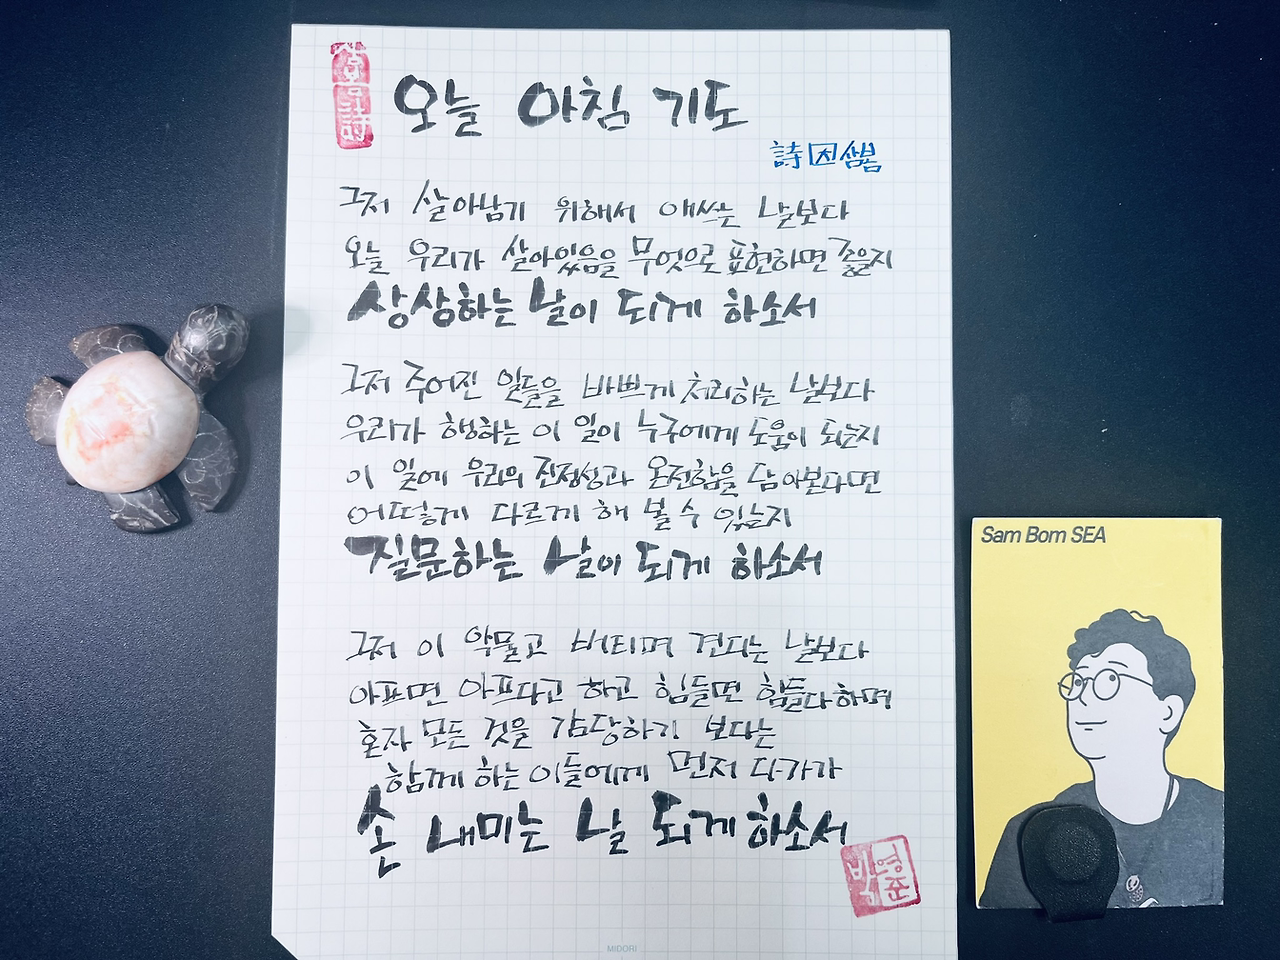 오늘 아침 기도
詩因쌤봄
그저 살아남기 위해서 애쓰는 날보다
오늘 우리가 살아있음을 무엇으로 표현하면 좋을지
상상하는 날이 되게 하소서
그저 주어진 일들을 바쁘게 처리하는 날보다
우리가 행하는 이 일이 누구에게 도움이 되는지
이 일에 우리의 진정성과 온전함을 담아본다면
어떻게 다르게 해 볼 수 있는지
질문하는 날이 되게 하소서
그저 이 악물고 버티며 견디는 날보다
아프면 아프다고 하고 힘들면 힘들다하며
혼자 모든 것을 감당하기 보다는
함께 하는 이들에게 먼저 다가가
손 내미는 날 되게 하소서
MIDORI
Sam Bom SEA